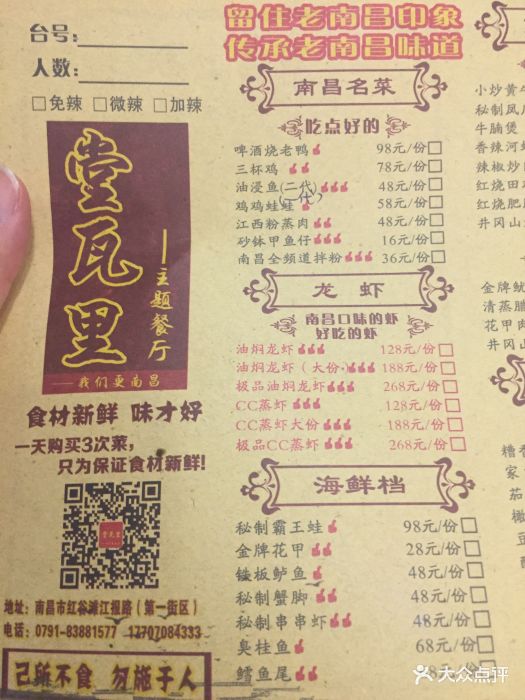 台号:
人数:
□免辣 □微辣 □加辣
堂瓦里
主题餐厅
——我们更南昌
食材新鲜 味才好
一天购买3次菜,
只为保证食材新鲜!
堂瓦里
地址: 南昌市红谷滩江报路(第一街区)
电话: 0791-83881577 17707084333
己所不食 勿施于人
留住老南昌印象
传承老南昌味道
南昌名菜
吃点好的
啤酒烧老鸭 98元/份□
三杯鸡 78元/份□
油浸鱼(二代) 48元/份□
(一代)
鸡鸡蛙蛙 58元/份□
江西粉蒸肉 48元/份□
砂钵甲鱼仔 16元/份□
南昌全频道拌粉 36元/份□
龙虾
南昌口味的虾
好吃的虾
油焖龙虾 128元/份□
油焖龙虾(大份) 188元/份□
极品油焖龙虾 268元/份□
CC蒸虾 128元/份□
CC蒸虾大份 188元/份□
极品CC蒸虾 268元/份□
海鲜档
秘制霸王蛙 98元/份□
金牌花甲 28元/份□
铁板鲈鱼 48元/份□
秘制蟹脚 48元/份□
秘制串串虾 48元/份□
臭桂鱼 68元/份□
鳕鱼尾 48元/份□
小炒黄牛
秘制凤
牛腩煲
香辣河
辣椒炒
红烧田
红烧肥
井冈山
金牌鱿
清蒸
花甲肉
井冈山
糟香
家
茄
橄
大众点评